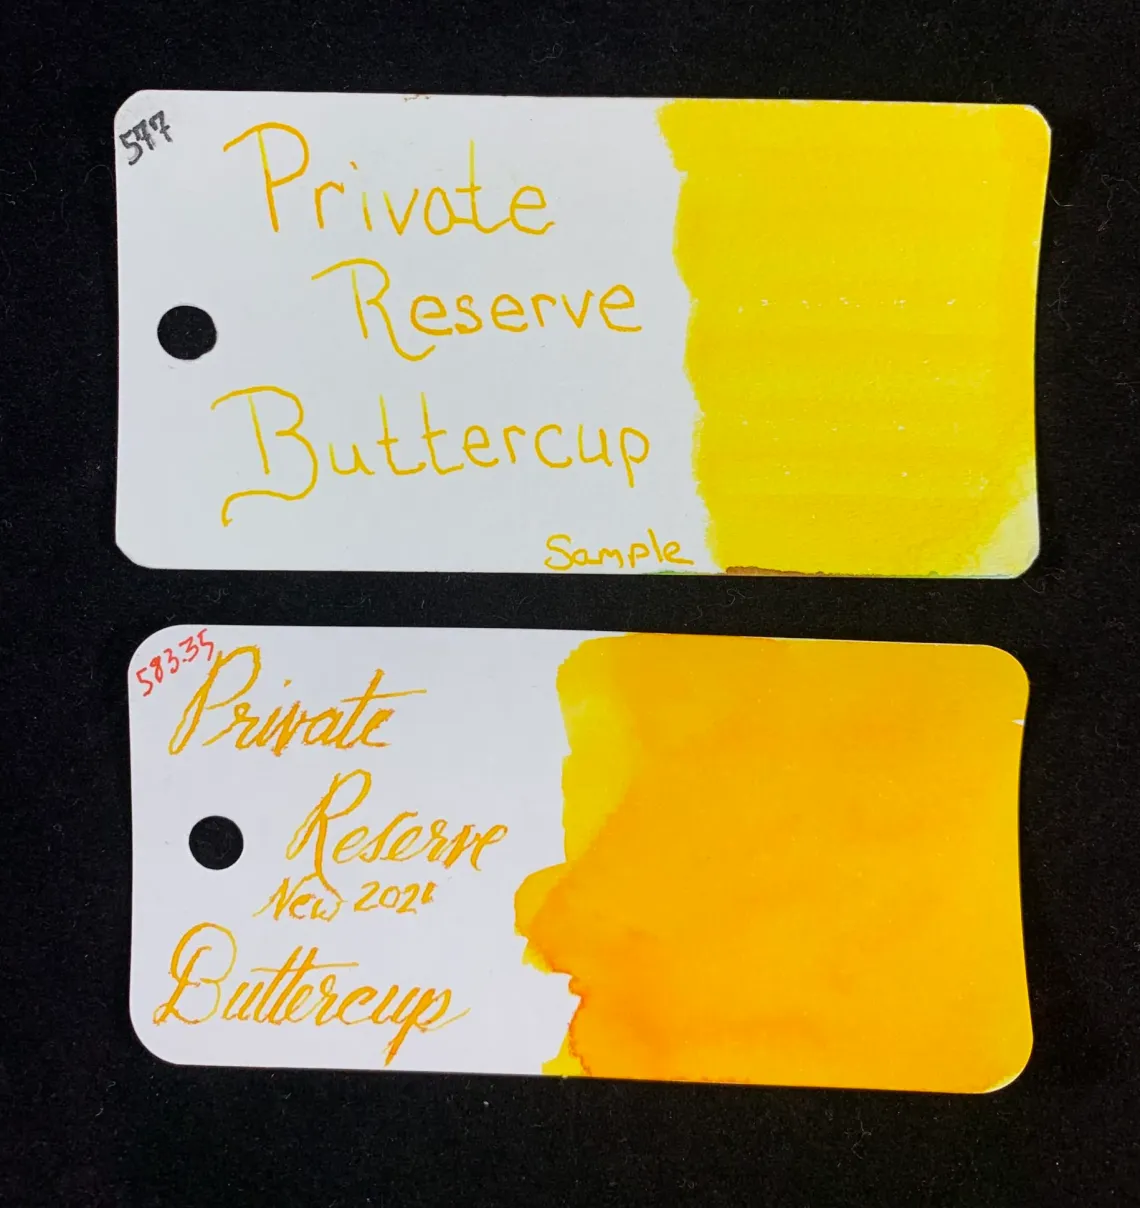 577
Private
Reserve
Buttercup
Sample
583.35
Private
Reserve
New 2021
Buttercup